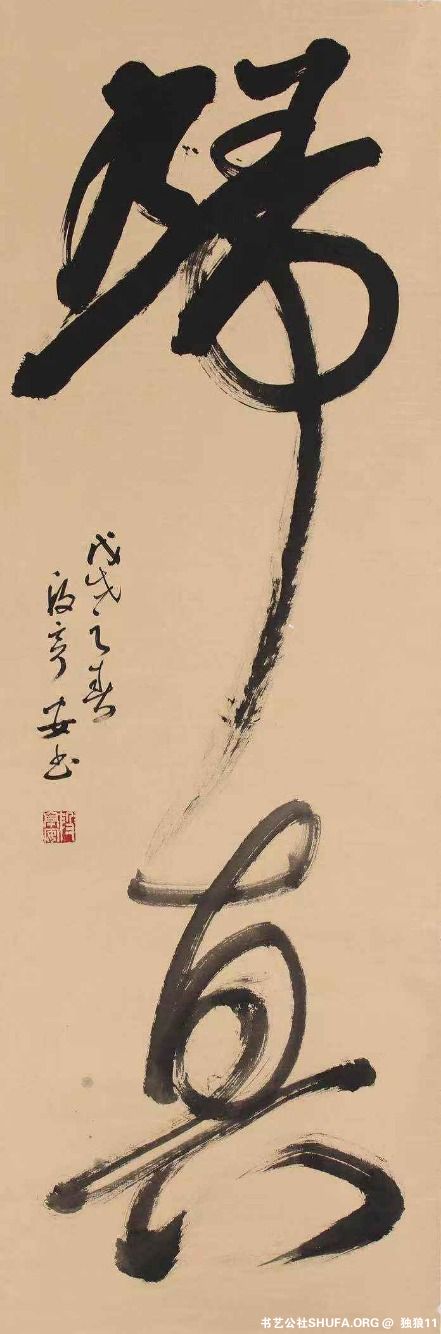 歸真
戊戌之春
安书
书艺公社SHUFA.ORG @ 独狼11